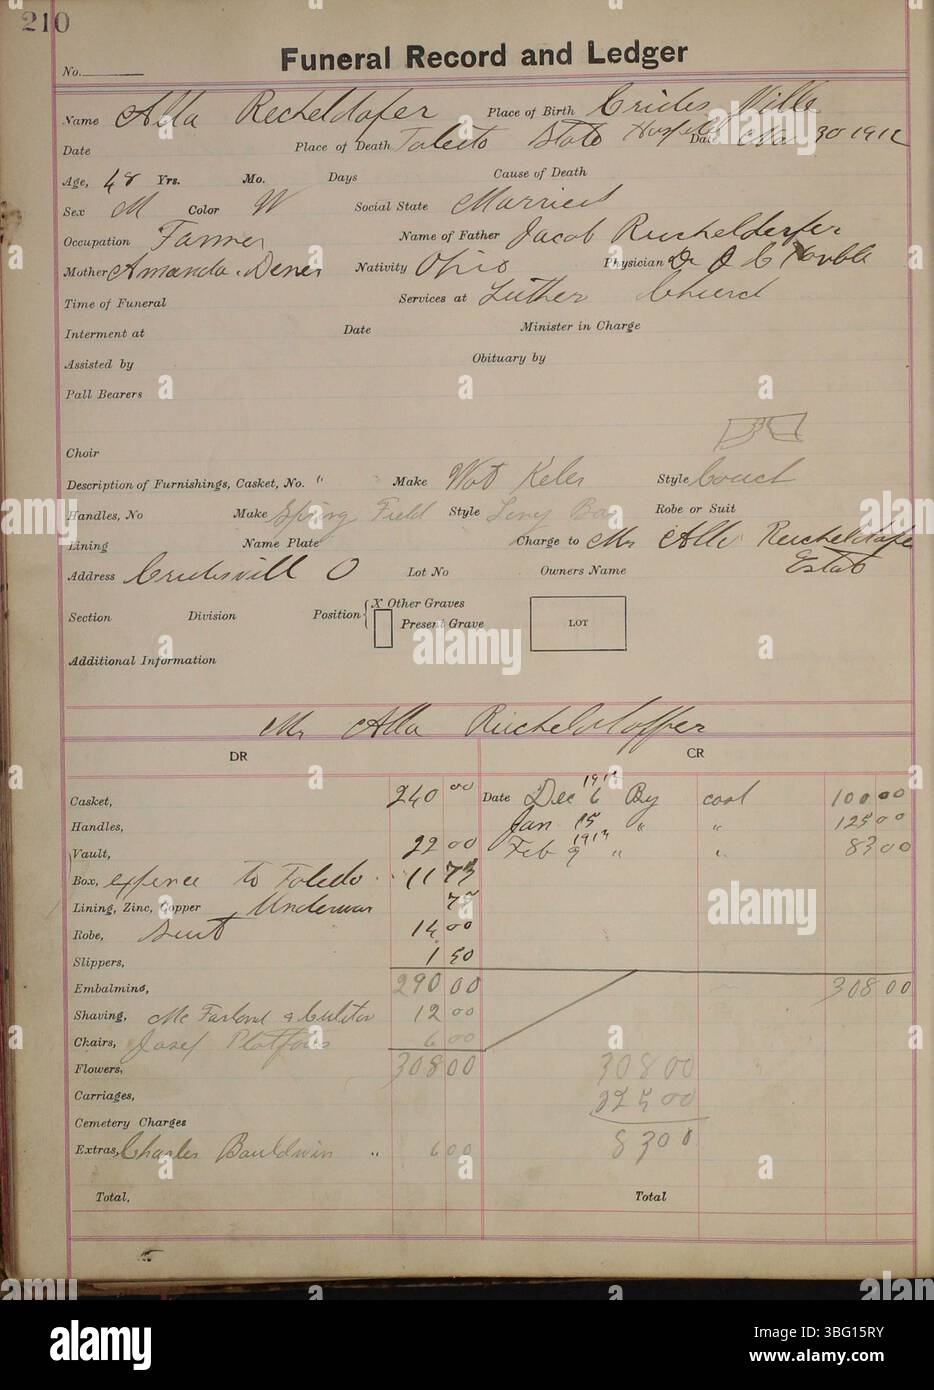 210
Funeral Record and Ledger
No.
Name Alla Recheldafer Place of Birth Crides Ville
Date Place of Death Toledo State Hospital Date Nov 30 1912
Age, 48 Yrs. Mo. Days Cause of Death
Sex M Color W Social State Married
Occupation Farmer Name of Father Jacob Richelderfer
Mother Amanda Nativity Ohio Physician Dr J C
Time of Funeral Services at Luther Church
Interment at Date Minister in Charge
Assisted by Obituary by
Pall Bearers
Choir
Description of Furnishings, Casket, No. " Make Style Couch
Handles, No Make Spring Field Style Robe or Suit
Lining Name Plate Charge to Mr Alla Recheldafer
Address Cridersvill O Lot No Owners Name Estat
Section Division Position X Other Graves
Present Grave
LOT
Additional Information
Mr Alla Richeldloffer
DR CR
Casket, 240 00 Date Dec 6 By cash 100 00
Handles, Jan 15 " " 125 00
Vault, 22 00 Feb 9 " " 83 00
Box, expence to Toledo 11 75
Lining, Zinc, Copper Underwar 75
Robe, Suit 14 00
Slippers, 1 50
Embalming, 290 00 308 00
Shaving, Mc Farland & 12 00
Chairs, Josef 6 00
Flowers, 308 00 308 00
Carriages, 225 00
Cemetery Charges
Extras, Charles Bauldwin " 6 00 83 00
Total, Total
alamy
Image ID: 3BG15RY
www.alamy.com